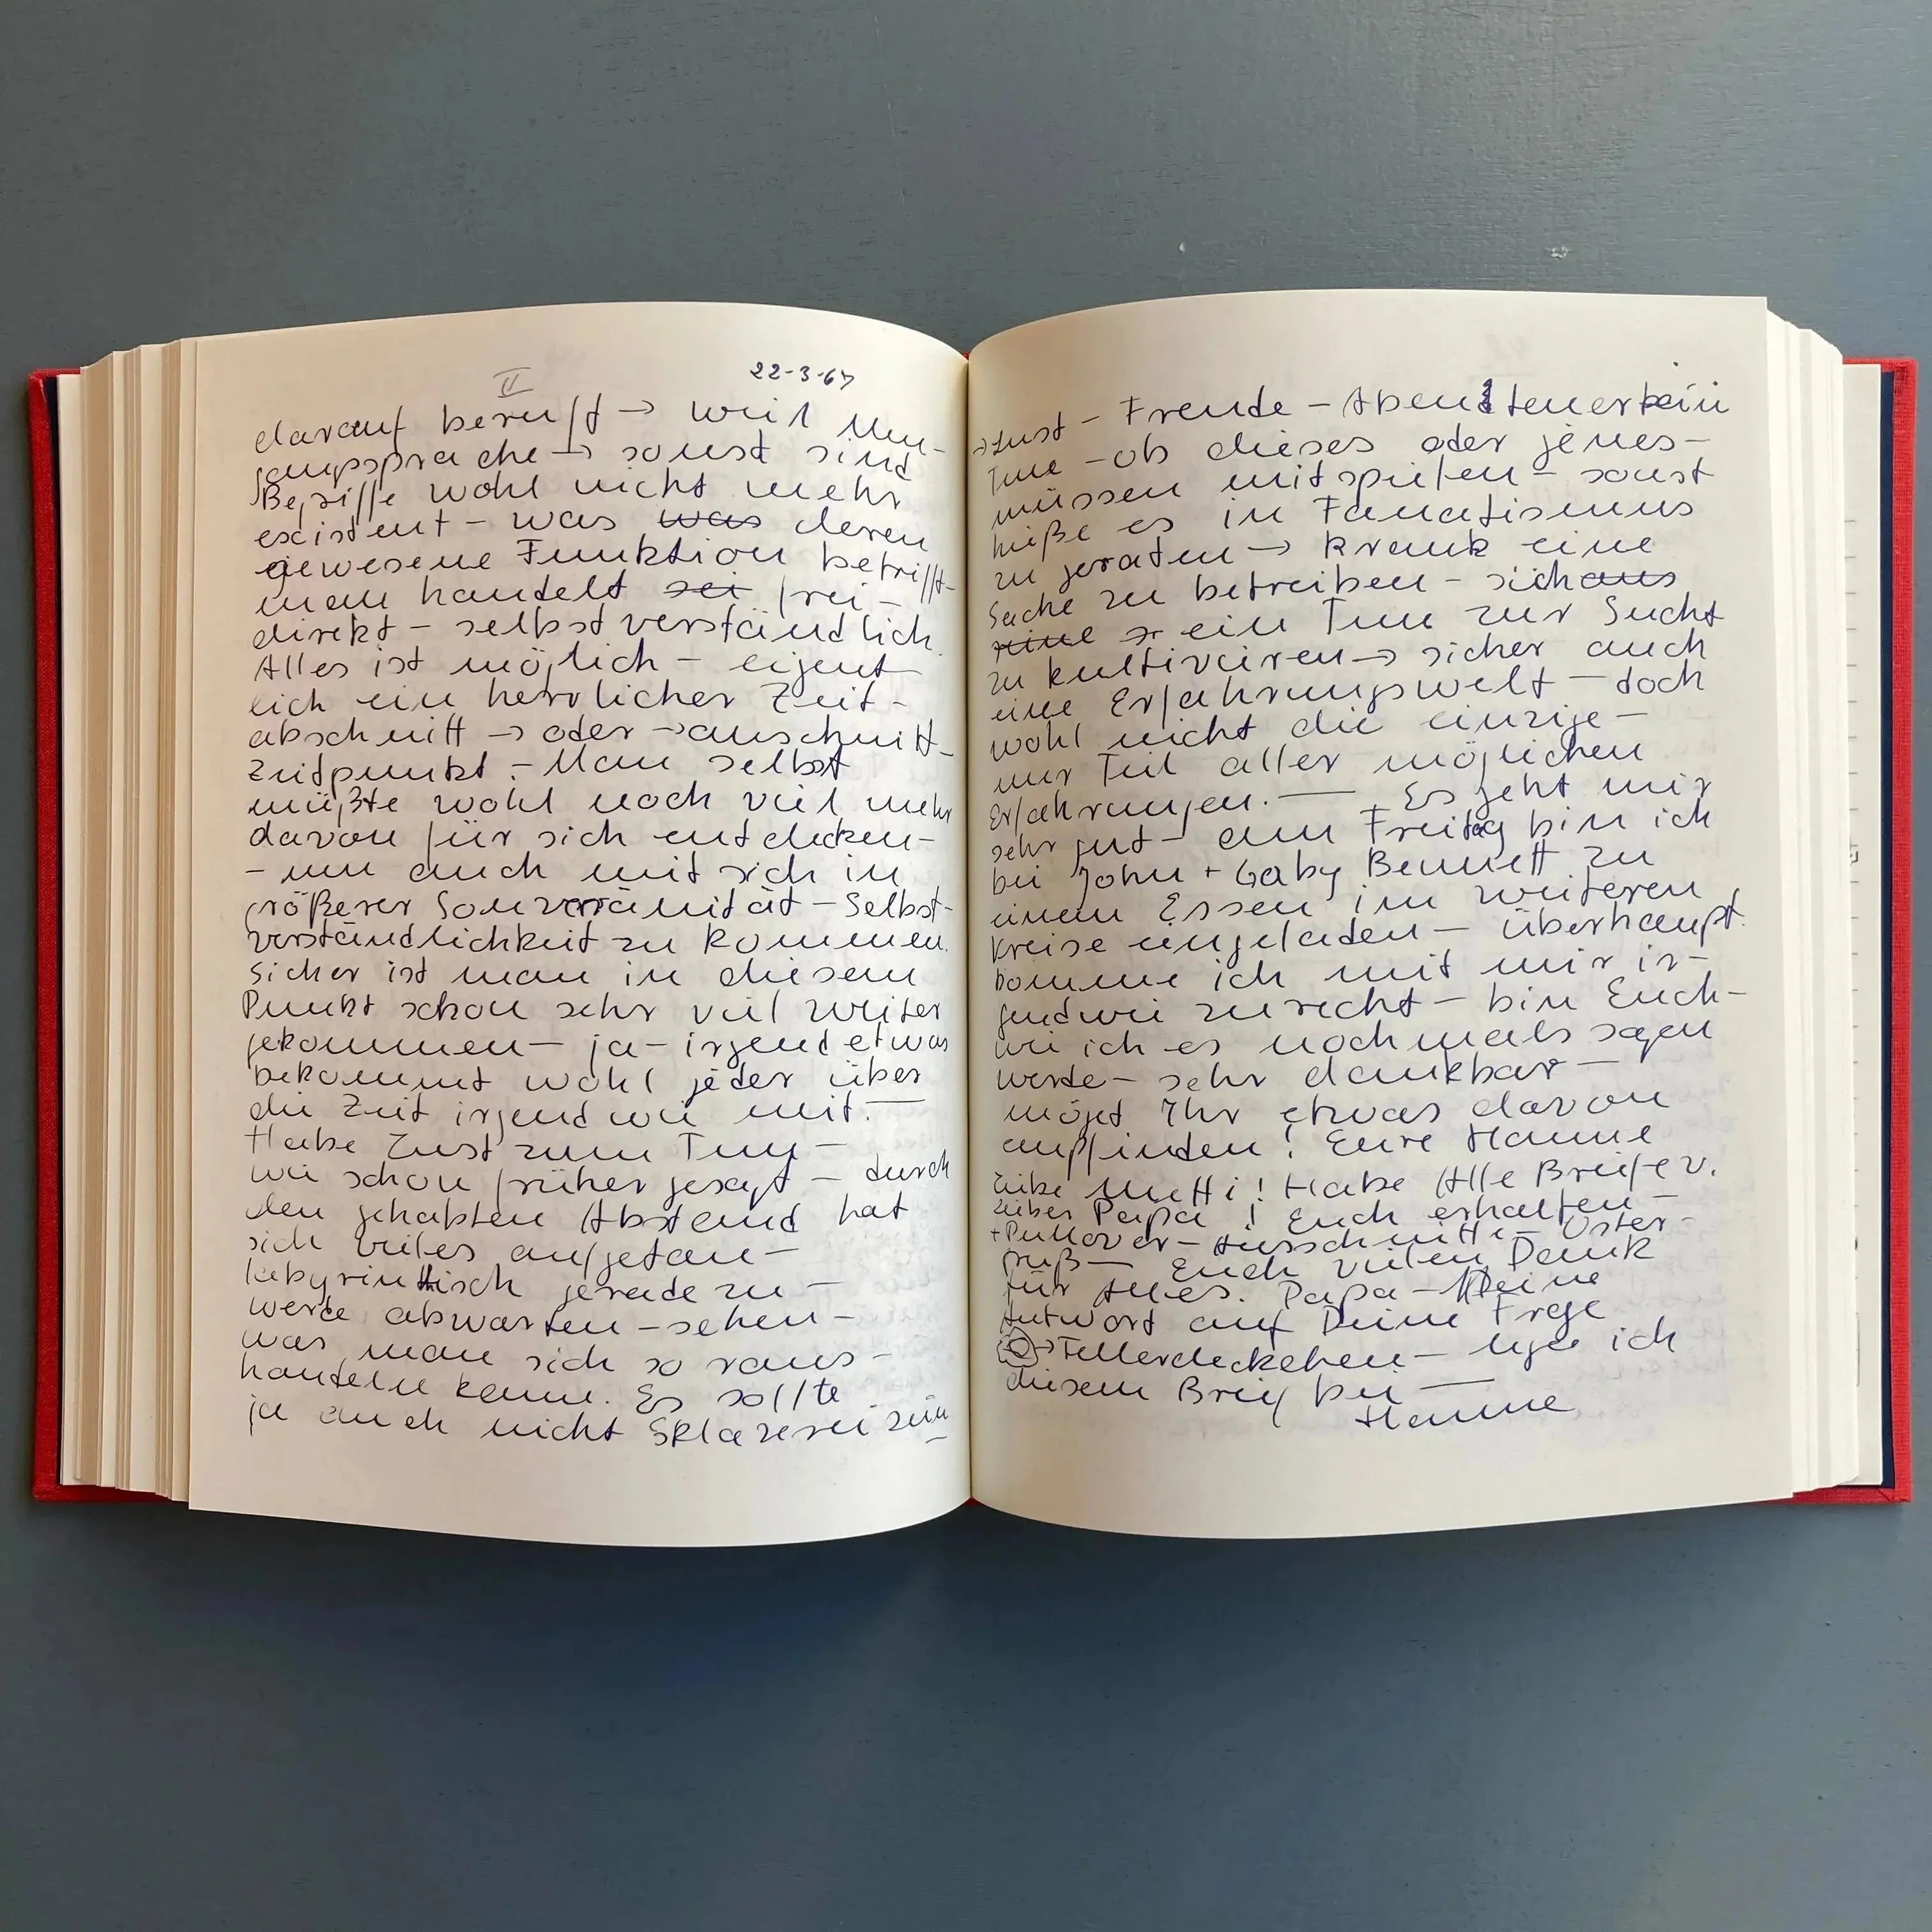 II 22-3-67
darauf beruft → weil Um-
gangssprache → sonst sind
Begriffe wohl nicht mehr
existent – was was deren
gewesene Funktion betrifft –
man handelt sei frei –
direkt – selbstverständlich.
Alles ist möglich – eigent
lich ein herrlicher Zeit-
abschnitt → oder → ausschnitt –
Zeitpunkt. – Man selbst
müßte wohl noch viel mehr
davon für sich entdecken –
– um auch mit sich in
größerer Souveränität – Selbst-
verständlichkeit zu kommen.
Sicher ist man in diesem
Punkt schon sehr viel weiter
gekommen – ja – irgend etwas
bekommt wohl jeder über
die Zeit irgendwie mit. —
Habe Lust zum Tun –
wie schon früher gesagt – durch
den gehabten Abstand hat
sich vieles aufgetan –
labyrinthisch geradezu –
werde abwarten – sehen –
was man sich so raus-
handeln kann. Es sollte
ja auch nicht Sklaverei sein –
→ Lust – Freude – Abenteuer beim
Tun – ob dieses oder jenes –
müssen mitspielen – sonst
hieße es in Fanatismus
zu geraten → krank eine
Sache zu betreiben – sich aus
eine ein Tun zur Sucht
zu kultivieren → sicher auch
eine Erfahrungswelt – doch
wohl nicht die einzige –
nur Teil aller möglichen
Erfahrungen. — Es geht mir
sehr gut – am Freitag bin ich
bei John + Gaby Bennett zu
einem Essen im weiteren
Kreise eingeladen – überhaupt
komme ich mit mir ir-
gendwie zurecht – bin Euch –
wie ich es nochmals sagen
werde – sehr dankbar –
möget Ihr etwas davon
empfinden! Eure Hanne
Liebe Mutti! Habe Alle Briefe v.
Lieber Papa! Euch erhalten –
+ Pullover – Ausschnitte – Oster-
gruß — Euch vielen Dank
für Alles. Papa – Meine
Antwort auf Deine Frage
→ Tellerdeckchen – lege ich
diesem Brief bei —
Hanne